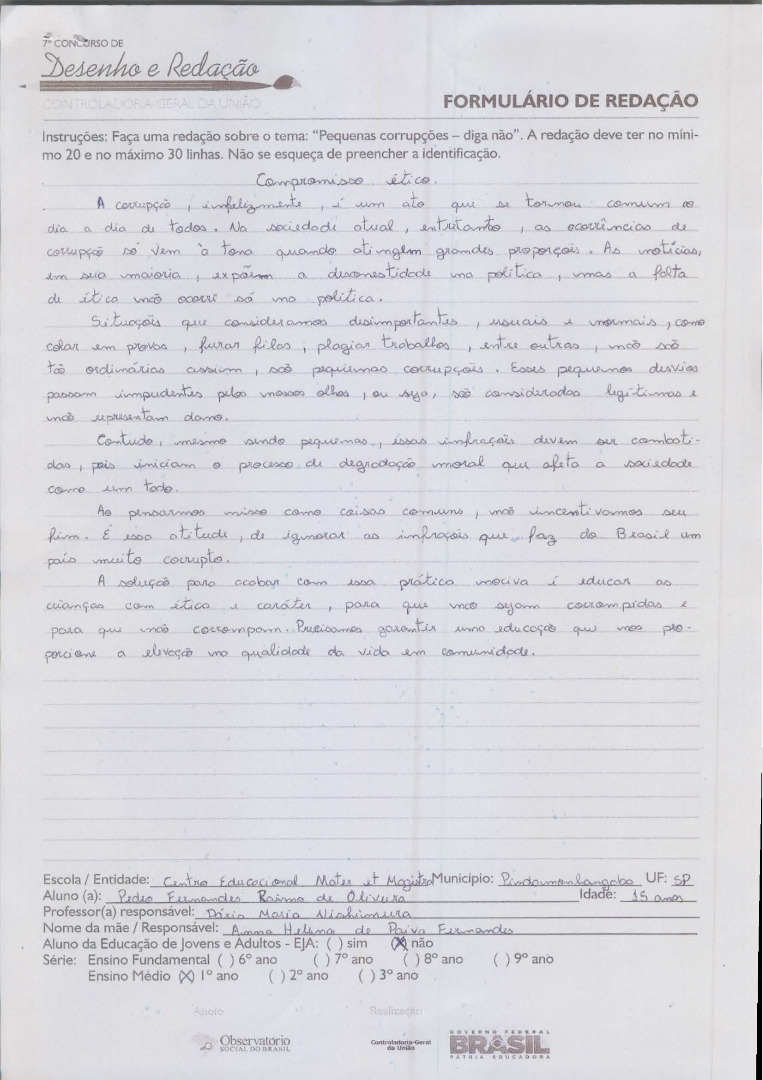 7º CONCURSO DE
Desenho e Redação
CONTROLADORIA-GERAL DA UNIÃO
FORMULÁRIO DE REDAÇÃO
Instruções: Faça uma redação sobre o tema: “Pequenas corrupções – diga não”. A redação deve ter no míni-
mo 20 e no máximo 30 linhas. Não se esqueça de preencher a identificação.
Compromisso ético.
A corrupção, infelizmente, é um ato que se tornou comum ao
dia a dia de todos. Na sociedade atual, entretanto, as ocorrências de
corrupção só vem à tona quando atingem grandes proporções. As notícias,
em sua maioria, expõem a desonestidade na política, mas a falta
de ética não ocorre só na política.
Situações que consideramos desimportantes, usuais e normais, como
colar em provas, furar filas, plagiar trabalhos, entre outras, não são
tão ordinárias assim, são pequenas corrupções. Esses pequenos desvios
passam impudentes pelos nossos olhos, ou seja, são considerados legítimas e
não representam dano.
Contudo, mesmo sendo pequenas, essas infrações devem ser combati-
das, pois iniciam o processo de degradação moral que afeta a sociedade
como um todo.
Ao pensarmos nisso como coisas comuns, não incentivamos seu
fim. É essa atitude, de ignorar as infrações que faz do Brasil um
país muito corrupto.
A solução para acabar com essa prática nociva é educar as
crianças com ética e caráter, para que não sejam corrompidas e
para que não corrompam. Precisamos garantir uma educação que nos pro-
porcione a elevação na qualidade da vida em comunidade.
Escola / Entidade: Centro Educacional Mater et Magistra Município: Pindamonhangaba UF: SP
Aluno (a): Pedro Fernandes Raimo de Oliveira Idade: 15 anos
Professor(a) responsável: Dázia Maria Nishimura
Nome da mãe / Responsável: Anna Helena de Paiva Fernandes
Aluno da Educação de Jovens e Adultos - EJA: ( ) sim (X) não
Série: Ensino Fundamental ( ) 6º ano ( ) 7º ano ( ) 8º ano ( ) 9º ano
Ensino Médio (X) 1º ano ( ) 2º ano ( ) 3º ano
Apoio Realização
Observatório
SOCIAL DO BRASIL
Controladoria-Geral
da União
GOVERNO FEDERAL
BRASIL
PÁTRIA EDUCADORA